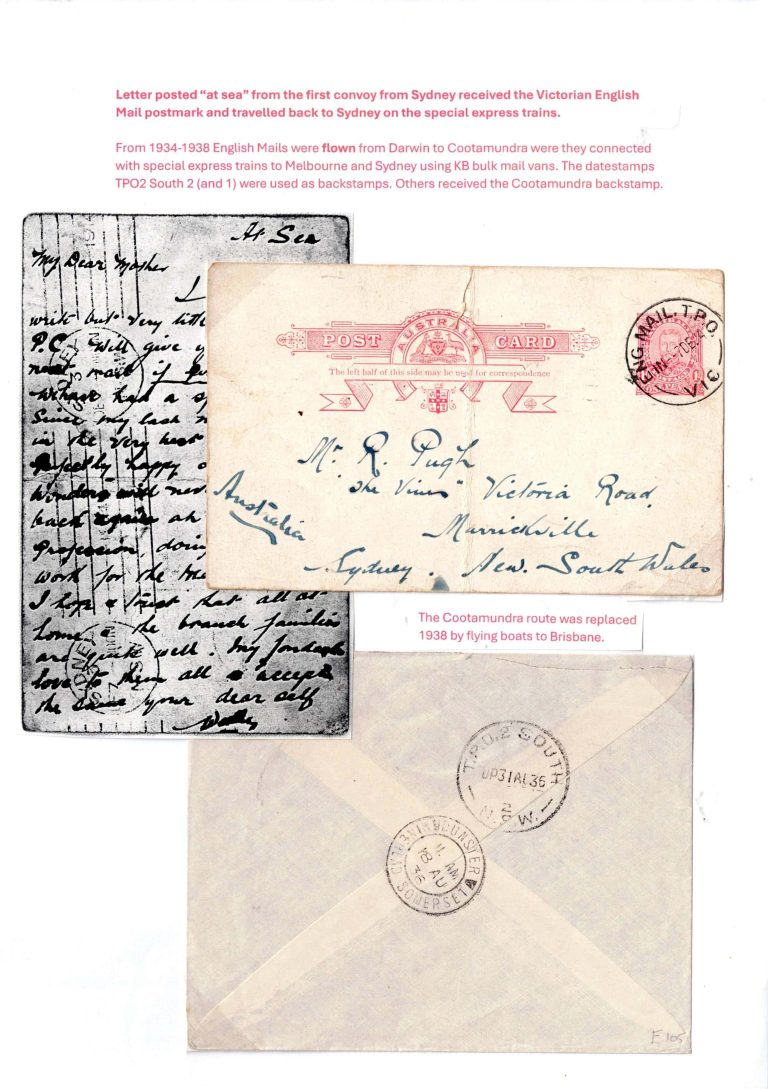 Letter posted “at sea” from the first convoy from Sydney received the Victorian English
Mail postmark and travelled back to Sydney on the special express trains.
From 1934-1938 English Mails were flown from Darwin to Cootamundra were they connected
with special express trains to Melbourne and Sydney using KB bulk mail vans. The datestamps
TPO2 South 2 (and 1) were used as backstamps. Others received the Cootamundra backstamp.
At Sea
My Dear Mother
I
write but very little
P.C. will give y
next mail if
We have had a s
Since my last
in the very best
perfectly happy
Wonders will nev
back again ah
profession, doin
work for the
I hope & trust that all at
home & the branch families
are quite well. My fondest
love to them all & accept
the same your dear self
Wally
SYDNEY
SYDNEY
AUSTRALIA
POST CARD
The left half of this side may be used for correspondence
ENG. MAIL. T.P.O.
VIC
Mr R. Pugh
"The Vines" Victoria Road,
Marrickville
Sydney. New. South Wales
Australia
The Cootamundra route was replaced
1938 by flying boats to Brisbane.
T.P.O.2 SOUTH
UP31AU36
N.S.W.
11. AM
18 AU
36
SOMERSET
E105